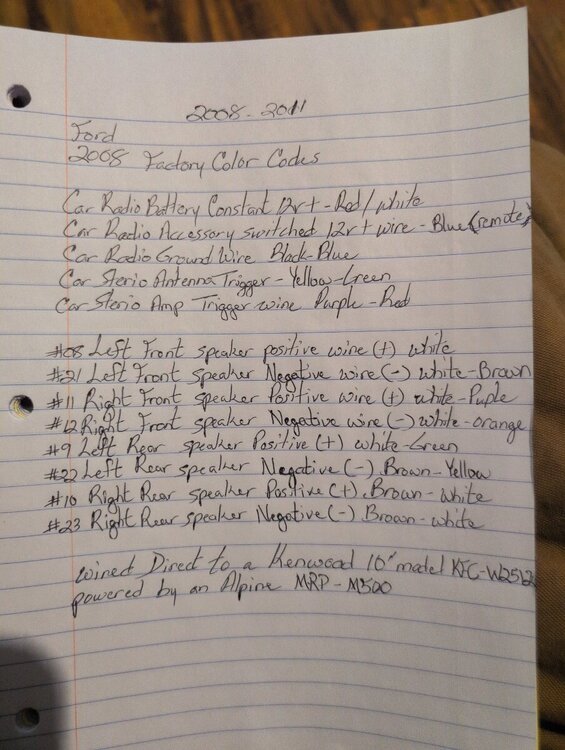 2008-2011
Ford
2008 Factory Color Codes
Car Radio Battery Constant 12v+ - Red/White
Car Radio Accessory switched 12v+ wire - Blue (remote)
Car Radio Ground Wire Black-Blue
Car Sterio Antenna Trigger - Yellow-Green
Car Sterio Amp Trigger wire Purple-Red
#08 Left Front speaker positive wire (+) white
#21 Left Front speaker Negative wire (-) White-Brown
#11 Right Front speaker Positive wire (+) white-Puple
#12 Right Front speaker Negative wire (-) white-orange
#9 Left Rear speaker Positive (+) white-Green
#22 Left Rear speaker Negative (-) Brown-Yellow
#10 Right Rear speaker Positive (+) Brown-white
#23 Right Rear speaker Negative (-) Brown-white
wired Direct to a Kenwood 10" model KFC-W2512
powered by an Alpine MRP-M500